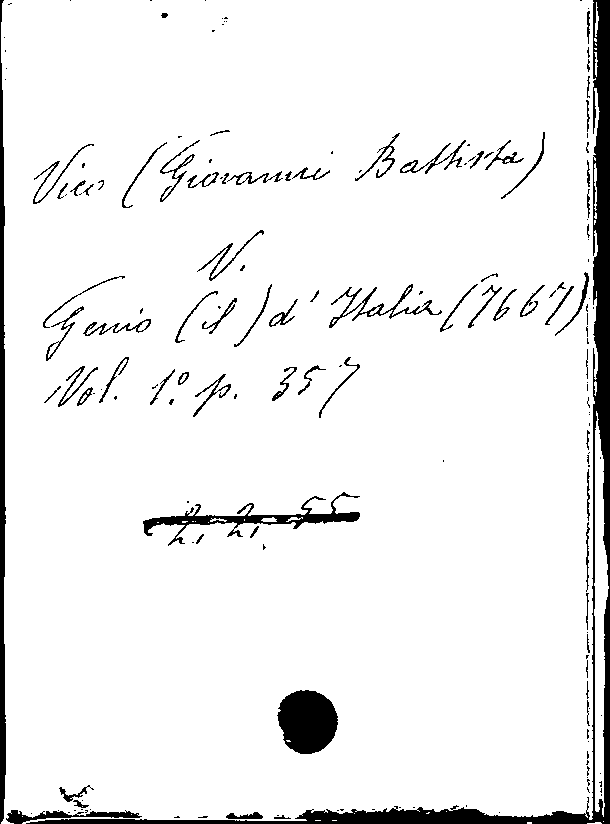 Vico (Giovanni Battista)
V.
Genio (il) d'Italia (7667)
Vol. 1º p. 357
2. 2. 55